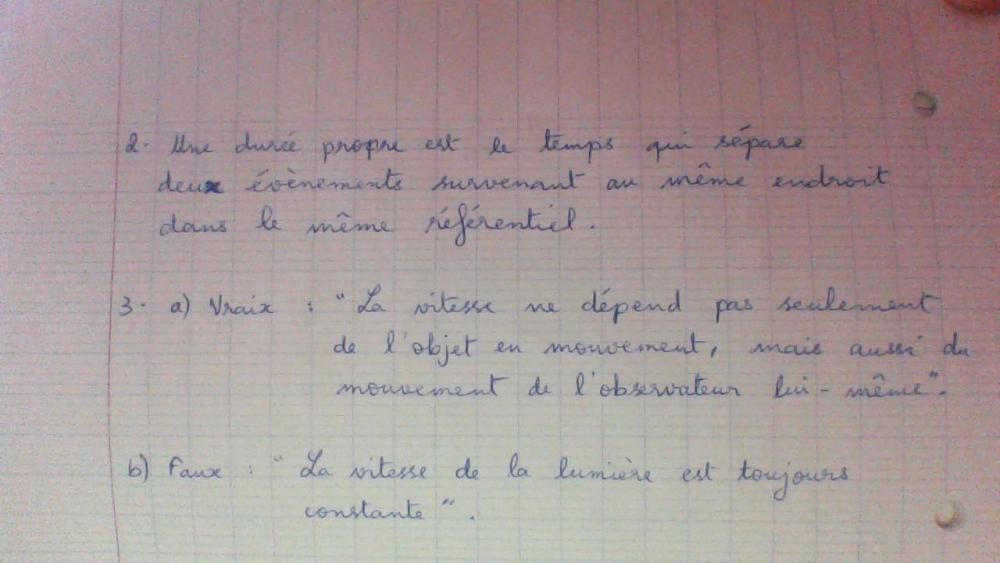 2. Une durée propre est le temps qui sépare
deux évènements survenant au même endroit
dans le même référentiel.
3. a) Vraix : "La vitesse ne dépend pas seulement
de l'objet en mouvement, mais aussi du
mouvement de l'observateur lui-même".
b) Faux : "La vitesse de la lumière est toujours
constante".